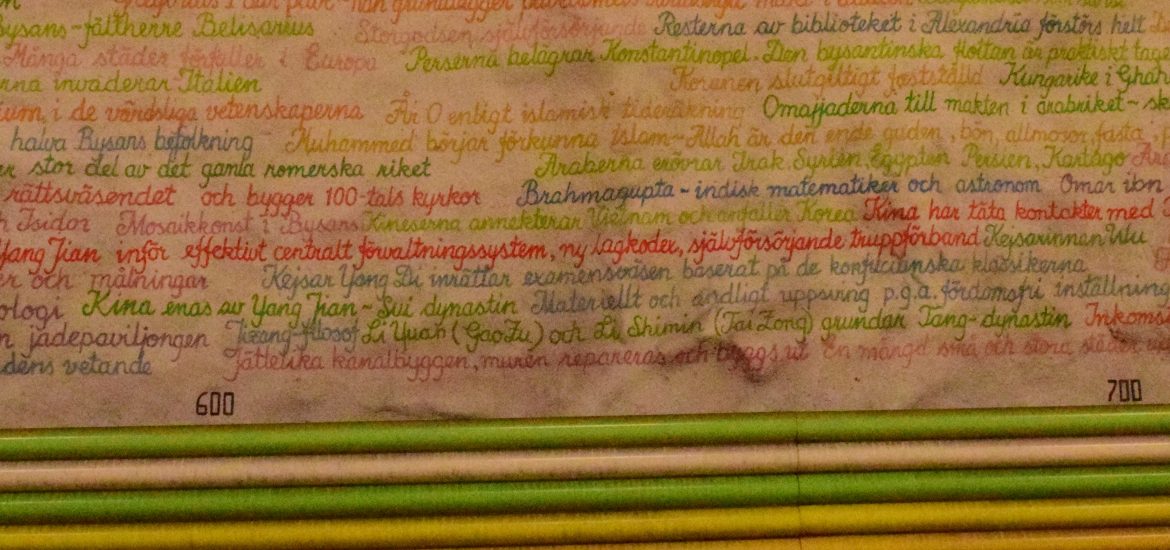 Bysans-fältherre Belisarius Storgodsen självförsörjande Resterna av biblioteket i Alexandria förstörs helt
Många städer förfaller i Europa Perserna belägrar Konstantinopel. Den bysantinska flottan är praktiskt
rna invaderar Italien Koranen slutgiltigt fastställd Kungarike i Ghan
ium, i de världsliga vetenskaperna År 0 enligt islamisk tideräkning Omajjaderna till makten i arabriket-
halva Bysans befolkning Muhammed börjar förkunna Islam-Allah är den ende guden, bön, allmosor, fasta,
er stor del av det gamla romerska riket Araberna erövrar Irak Syrien, Egypten Persien, Kartago
rättsväsendet och bygger 100-tals kyrkor Brahmagupta-indisk matematiker och astronom Omar ibn
h Isidor Mosaikkonst i Bysans Kineserna annekterar Vietnam och anfaller Korea Kina har täta kontakter med
Yang Jian inför effektivt centralt förvaltningssystem, ny lagkodex, självförsörjande truppförband Kejsarinnan Wu
er och målningar Kejsar Yang Di inrättar examensväsen baserat på de konfucianska klassikerna
ologi Kina enas av Yang Jian-Sui dynastin Materiellt och andligt uppsving p.g.a. fördomsfri inställning
n jadepaviljongen filosof Li Yuan (GaoZu) och Li Shimin (Tai Zong) grundar Tang-dynastin Inkoms
dens vetande Jättelika kanalbyggen, muren repareras och byggs ut En mängd små och stora städer
600 700